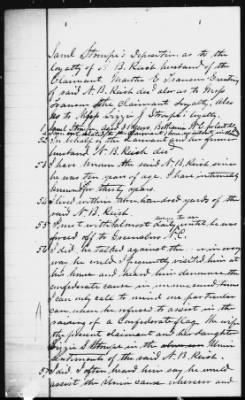 Saml Stroupe's Deposition as to the
loyalty of N. B. Reich husband of the
Claimant Martha E Transou Executrix
of said N. B. Reich decd also as to Mrs
Transou the claimant loyalty. Also
as to Miss Lizzie J Stroupe's loyalty.
1 Saml Stroupe
In behalf of the claimant and her former
husband N. B. Reich decd
53 I have known the said N. B. Reich since
he was ten years of age. I have intimately
known for thirty years.
54 I lived within three hundred yards of the
said N. B. Reich.
55 I met with almost daily until he was
forced off to Greensboro N.C.
56 I did, he talked against the war in every
way he could I frequently visited him at
his house and heard him denounce the
confederate cause in, unmeasured terms
I can only call to mind one particular
case, when he refused to assist in the
raising of a Confederate flag. His wife
the present claimant and her daughter
Lizzie J Stroupe in the Union
sentiments of the said N. B. Reich.
57 I did, I often heard him say he would
assist the Union cause whenever and